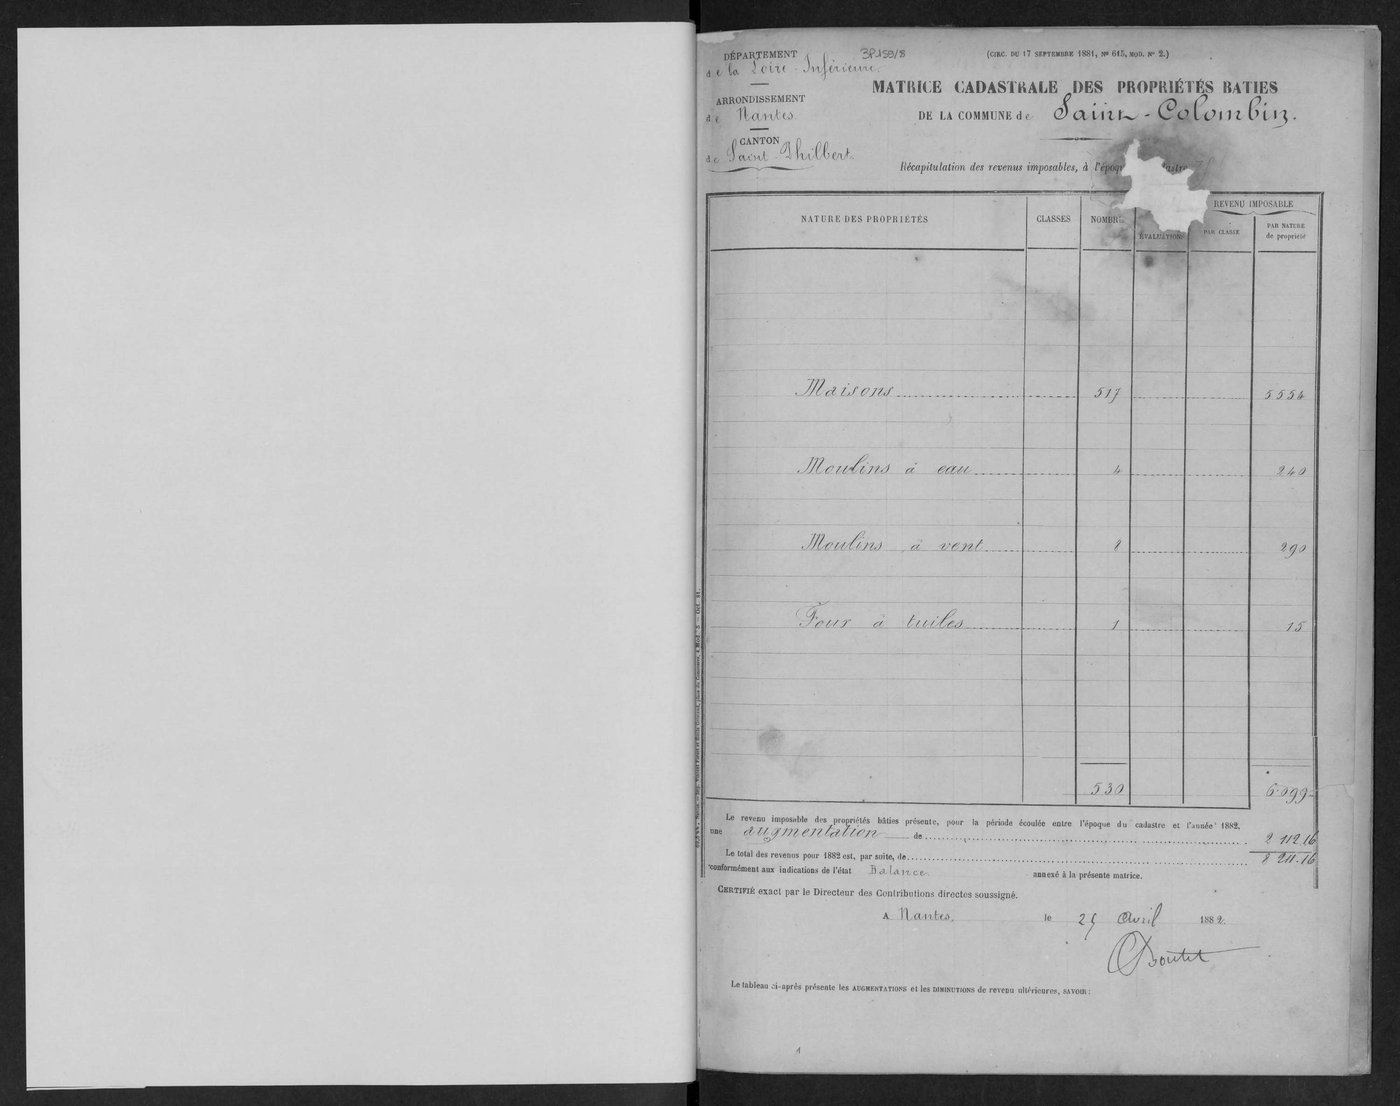 DÉPARTEMENT
de la Loire-Inférieure.
3P159/8
(CIRC. DU 17 SEPTEMBRE 1881, Nº 615, MOD. Nº 2.)
ARRONDISSEMENT
de Nantes.
CANTON
de Saint-Philbert.
MATRICE CADASTRALE DES PROPRIÉTÉS BATIES
DE LA COMMUNE de Saint-Colombin.
Récapitulation des revenus imposables, à l'époq
NATURE DES PROPRIÉTÉS CLASSES NOMBRE ÉVALUATIONS REVENU IMPOSABLE
PAR CLASSE PAR NATURE de propriété
Maisons 517 5554
Moulins à eau 4 240
Moulins à vent 8 290
Four à tuiles 1 15
530 6.099
Le revenu imposable des propriétés bâties présente, pour la période écoulée entre l'époque du cadastre et l'année 1882,
une augmentation de 2 112.16
Le total des revenus pour 1882 est, par suite, de 8 211.16
conformément aux indications de l'état Balance annexé à la présente matrice.
CERTIFIÉ exact par le Directeur des Contributions directes soussigné.
A Nantes, le 25 Avril 1882.
Le tableau ci-après présente les AUGMENTATIONS et les DIMINUTIONS de revenu ultérieures, SAVOIR :
1